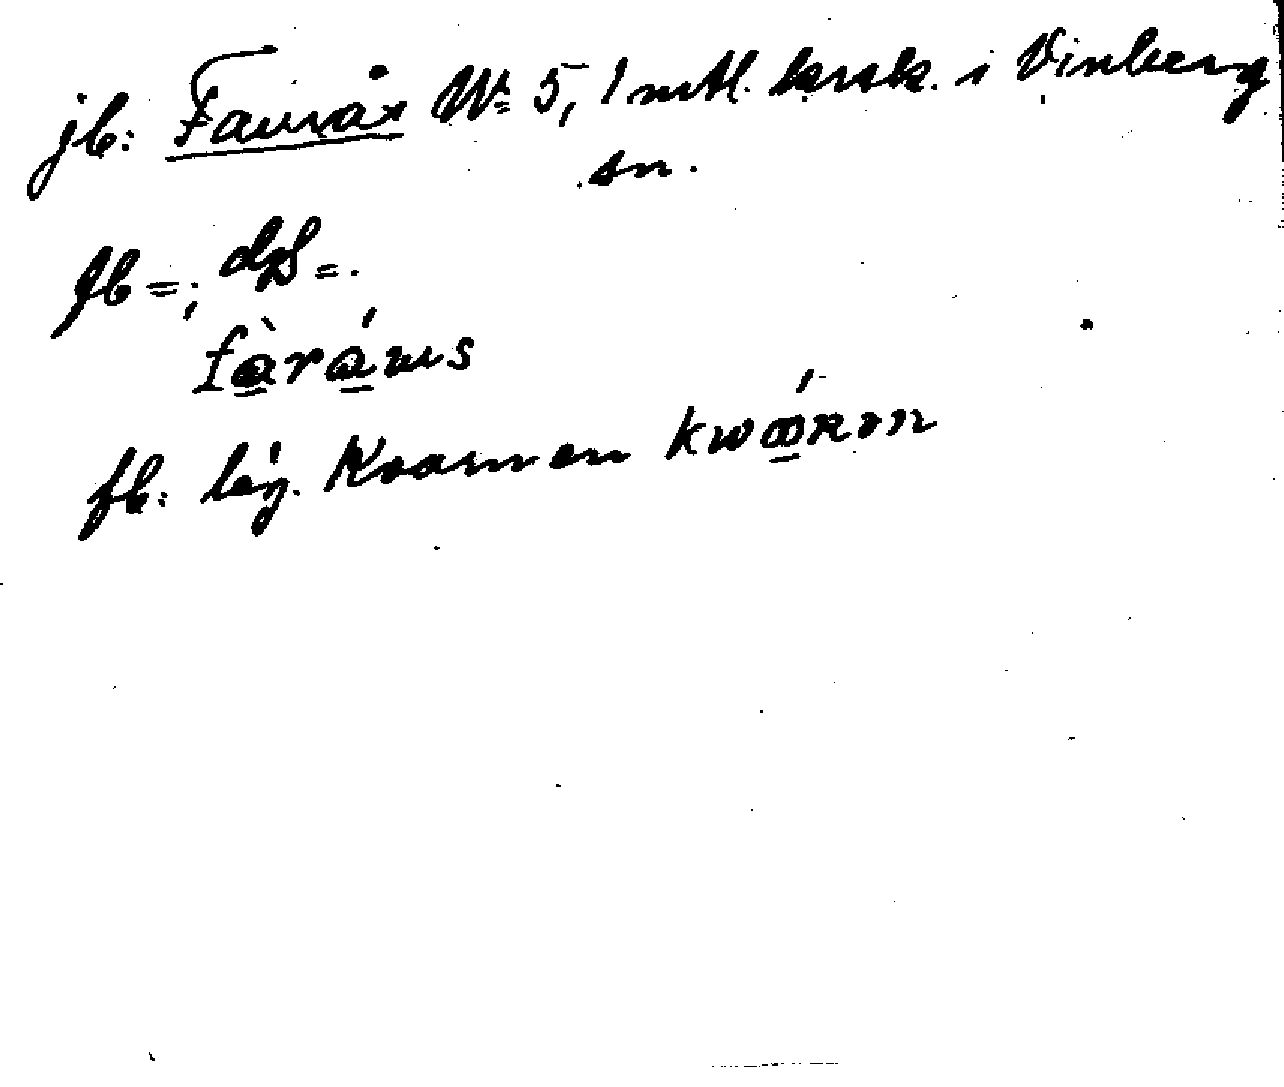 jb: Faurås Nr 5, 1 mtl. krsk. i Vinberg
sn.
fb =; dpf =.
fàráws
fb: läg. Kvarnen kwáṛnn